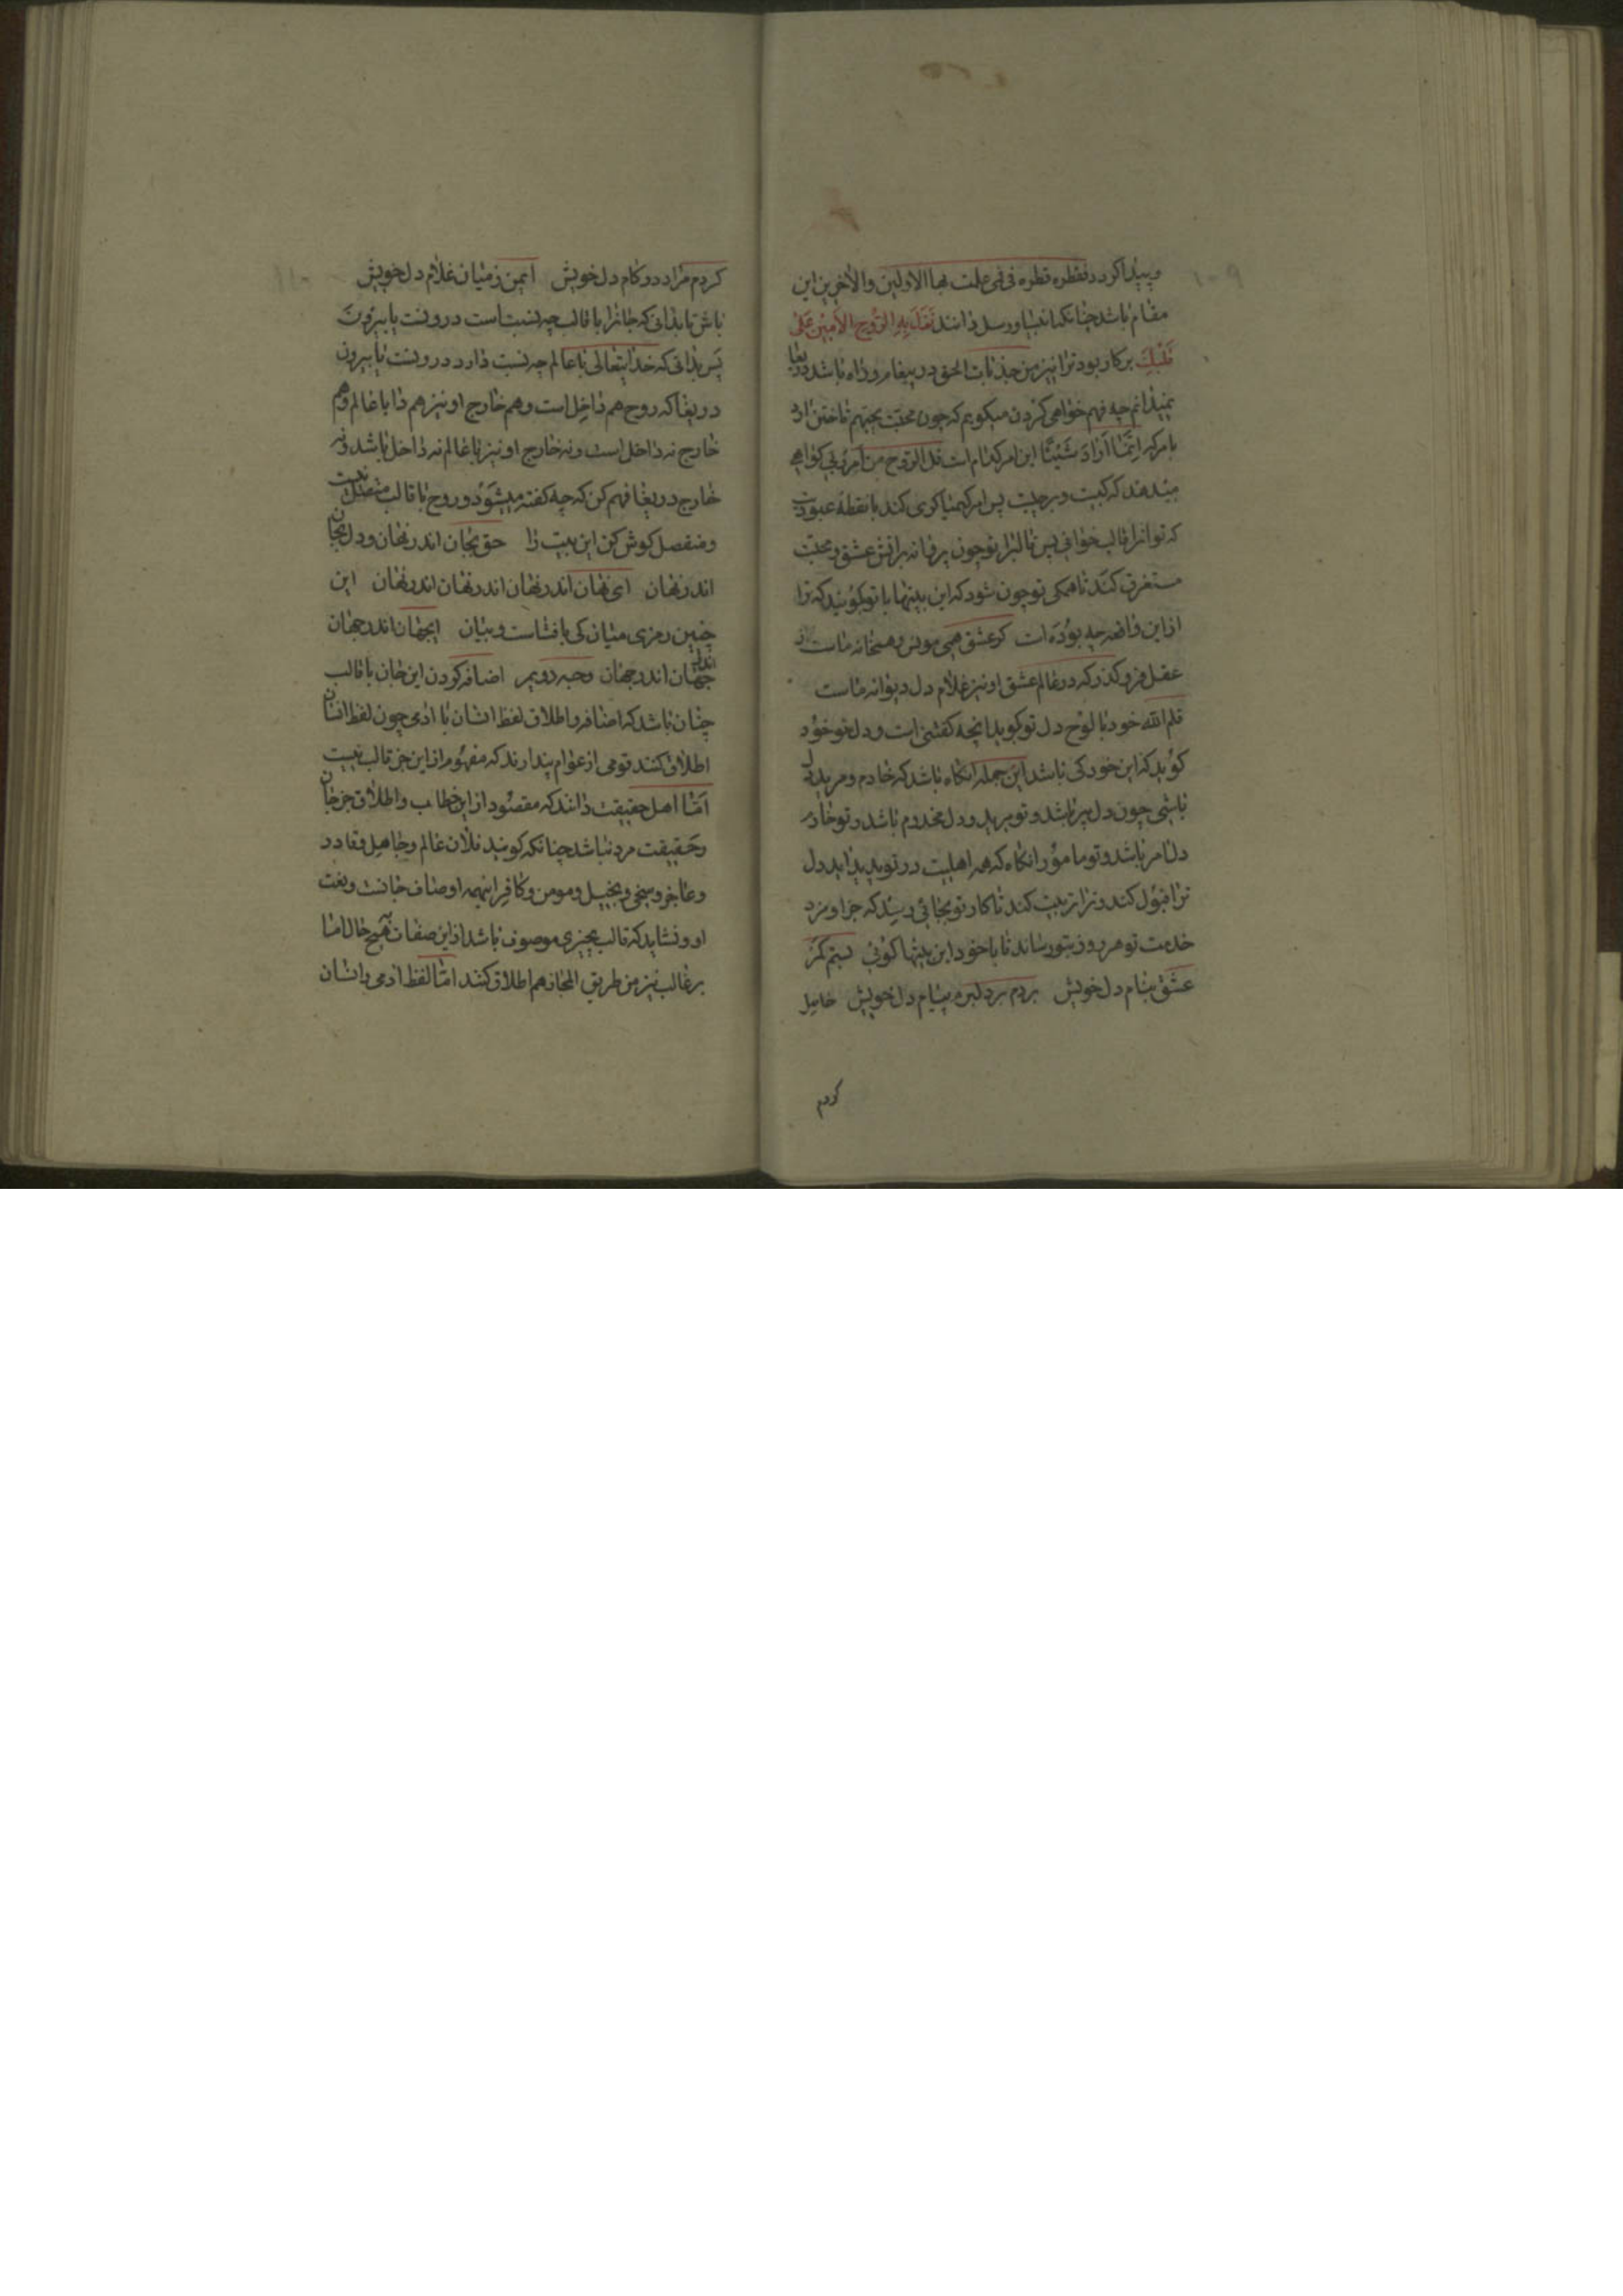 ۱۰۹
و پیدا کردد نقطره قطره فی فمی علمت بها الاولین والاخرین این
مقام باشد چنانکه انبیا و رسل دانند نَزَلَ بِهِ الرُّوحُ الاَمِینُ عَلٰی
قَلْبِكَ برکار بود ترا نیز من جذبات الحق در پیغام و راه باشد دریغا
نمیدانم چه فهم خواهی کردن میکویم که چون محبت یحبهم تاختن ارد
بامر که اِنَّمَا اَرَادَ شَیْئًا این امر کدام است قل الروح من امر ربی کواهی
میدهد که کیست و بر چیست پس امر کیمیا کری کند با نقطهٔ عبودیت
که تو انرا قالب خوانی پس قالبرا نو چون پروانه بر اتش عشق و محبت
مستغرق کند تا همکی تو چون شود که این بیتها با تو بکویند که ترا
از این واقعه چه بوده است کر عشق همی مونس و همخانه ماست از
عقل فرو کذر که در عالم عشق او نیز غلام دل دیوانه ماست
قلم الله خود با لوح دل تو کوید انچه کفتنی است و دل تو خود
کوید که این خود کی باشد این جمله انکاه باشد که خادم و مرید دل
باشی چون دل پیر باشد و تو مرید و دل مخدوم باشد و تو خادم
دل امر باشد و تو مامور انکاه که همه اهلیت در تو پدید اید دل
ترا قبول کند و ترا تربیت کند تا کار تو بجائی رسد که جزا و مزد
خدمت تو هر روز بتو رساند تا با خود این بیتها کوئی بستم کمر
عشق بنام دل خویش بردم بر دلبرم پیام دل خویش حاصل
کردم
۱۱۰
کردم مراد دو کام دل خویش ایمن ز میان غلام دل خویش
باش تا بدانی که جانرا با قالب چه نسبت است درونست یا بیرون
پس بدانی که خدایتعالی با عالم چه نسبت دارد درونست یا بیرون
دریغا که روح هم داخل است و هم خارج او نیز هم دا با عالم و هم
خارج نه داخل است و نه خارج او نیز با عالم نه داخل باشد و نه
خارج دریغا فهم کن که چه کفته میشود و روح با قالب متصل نیست
و منفصل کوش کن این بیت را حق بجان اندر نهان و دل بجان
اندر نهان ای نهان اندر نهان اندر نهان اندر نهان این
چنین رمزی میان کی یافتاست و بیان ایجهان اندر جهان اندر
جهان اندر جهان وجه دویم اضافه کردن این جان با قالب
چنان باشد که اضافه و اطلاق لفظ انسان با ادمی چون لفظ انسان
اطلاق کنند قومی از عوام پندارند که مفهوم از این جز قالب نیست
اَمَّا اهل حقیقت دانند که مقصود از این خطاب و اطلاق جز جان
و حقیقت مرد نباشد چنانکه کویند فلان عالم و جاهل و قادر
و عاجز و سخی و بخیل و مومن و کافر اینهمه اوصاف جانست و نعت
او و نشاید که قالب بچیزی موصوف باشد از این صفات بهیچ حال اما
بر قالب نیز من طریق المجاز هم اطلاق کنند امّا لفظ ادمی و انسان